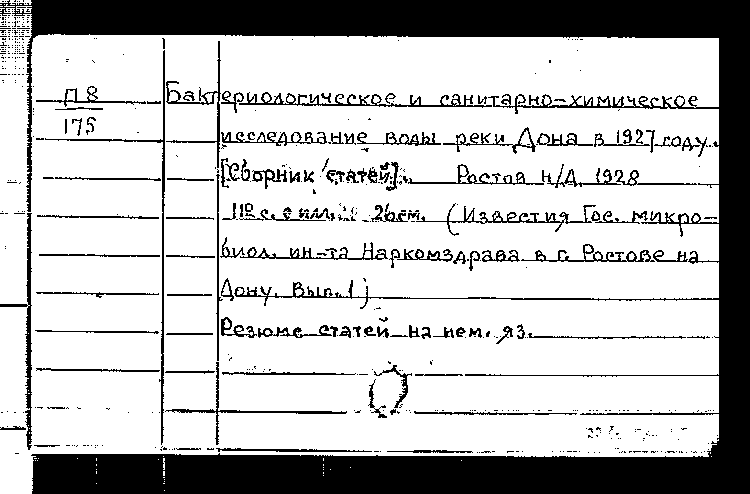 П 8
175
Бактериологическое и санитарно-химическое
исследование воды реки Дона в 1927 году.
[Сборник статей]. Ростов н/Д. 1928
110 с. с илл. 26 см. (Известия Гос. микро-
биол. ин-та Наркомздрава в г. Ростове на
Дону. Вып. 1)
Резюме статей на нем. яз.